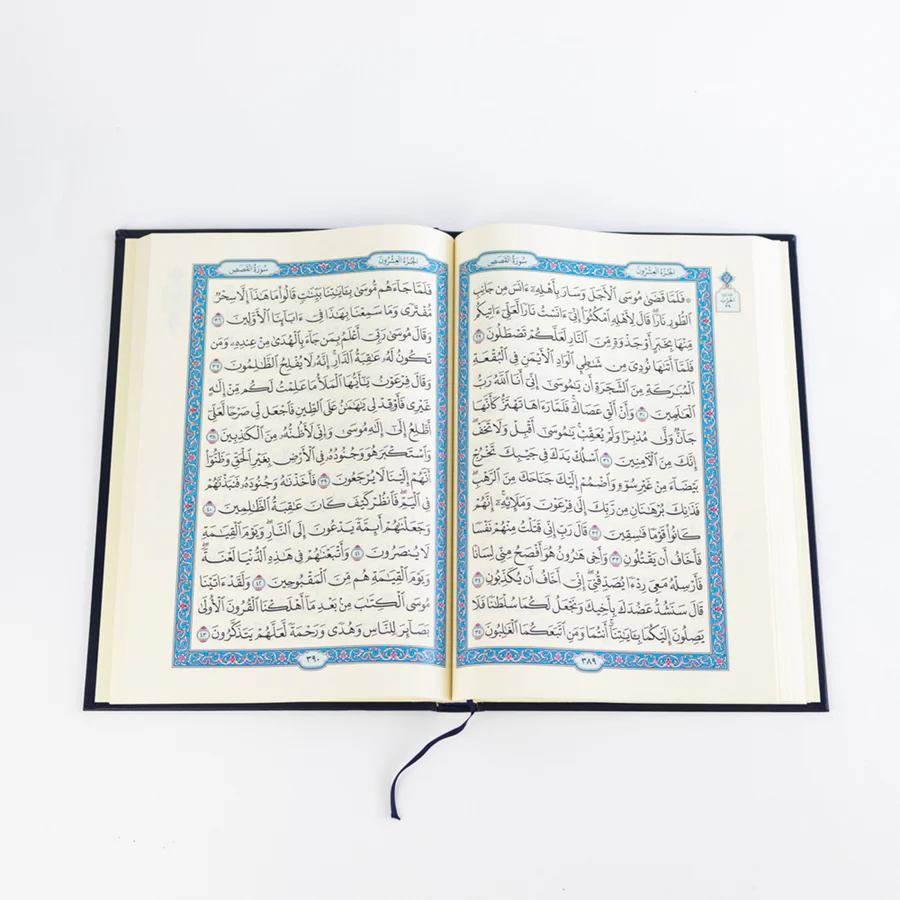 الجُزْءُ العِشْرُونَ
سُورَةُ القَصَصِ
۞ فَلَمَّا قَضَىٰ مُوسَى ٱلْأَجَلَ وَسَارَ بِأَهْلِهِۦٓ ءَانَسَ مِن جَانِبِ
ٱلطُّورِ نَارًاۖ قَالَ لِأَهْلِهِ ٱمْكُثُوٓا۟ إِنِّىٓ ءَانَسْتُ نَارًا لَّعَلِّىٓ ءَاتِيكُم
مِّنْهَا بِخَبَرٍ أَوْ جَذْوَةٍ مِّنَ ٱلنَّارِ لَعَلَّكُمْ تَصْطَلُونَ ٢٩
فَلَمَّآ أَتَىٰهَا نُودِىَ مِن شَٰطِئِ ٱلْوَادِ ٱلْأَيْمَنِ فِى ٱلْبُقْعَةِ
ٱلْمُبَٰرَكَةِ مِنَ ٱلشَّجَرَةِ أَن يَٰمُوسَىٰٓ إِنِّىٓ أَنَا ٱللَّهُ رَبُّ
ٱلْعَٰلَمِينَ ٣٠ وَأَنْ أَلْقِ عَصَاكَۖ فَلَمَّا رَءَاهَا تَهْتَزُّ كَأَنَّهَا
جَآنٌّ وَلَّىٰ مُدْبِرًا وَلَمْ يُعَقِّبْۚ يَٰمُوسَىٰٓ أَقْبِلْ وَلَا تَخَفْۖ
إِنَّكَ مِنَ ٱلْءَامِنِينَ ٣١ ٱسْلُكْ يَدَكَ فِى جَيْبِكَ تَخْرُجْ
بَيْضَآءَ مِنْ غَيْرِ سُوٓءٍ وَٱضْمُمْ إِلَيْكَ جَنَاحَكَ مِنَ ٱلرَّهْبِۖ
فَذَٰنِكَ بُرْهَٰنَانِ مِن رَّبِّكَ إِلَىٰ فِرْعَوْنَ وَمَلَإِي۟هِۦٓۚ إِنَّهُمْ
كَانُوا۟ قَوْمًا فَٰسِقِينَ ٣٢ قَالَ رَبِّ إِنِّى قَتَلْتُ مِنْهُمْ نَفْسًا
فَأَخَافُ أَن يَقْتُلُونِ ٣٣ وَأَخِى هَٰرُونُ هُوَ أَفْصَحُ مِنِّى لِسَانًا
فَأَرْسِلْهُ مَعِىَ رِدْءًا يُصَدِّقُنِىٓۖ إِنِّىٓ أَخَافُ أَن يُكَذِّبُونِ ٣٤
قَالَ سَنَشُدُّ عَضُدَكَ بِأَخِيكَ وَنَجْعَلُ لَكُمَا سُلْطَٰنًا فَلَا
يَصِلُونَ إِلَيْكُمَا بِـَٔايَٰتِنَآۚ أَنتُمَا وَمَنِ ٱتَّبَعَكُمَا ٱلْغَٰلِبُونَ ٣٥
٣٨٩
الجُزْءُ العِشْرُونَ
سُورَةُ القَصَصِ
فَلَمَّا جَآءَهُم مُّوسَىٰ بِـَٔايَٰتِنَا بَيِّنَٰتٍ قَالُوا۟ مَا هَٰذَآ إِلَّا سِحْرٌ
مُّفْتَرًى وَمَا سَمِعْنَا بِهَٰذَا فِىٓ ءَابَآئِنَا ٱلْأَوَّلِينَ ٣٦
وَقَالَ مُوسَىٰ رَبِّىٓ أَعْلَمُ بِمَن جَآءَ بِٱلْهُدَىٰ مِنْ عِندِهِۦ وَمَن
تَكُونُ لَهُۥ عَٰقِبَةُ ٱلدَّارِۚ إِنَّهُۥ لَا يُفْلِحُ ٱلظَّٰلِمُونَ ٣٧
وَقَالَ فِرْعَوْنُ يَٰٓأَيُّهَا ٱلْمَلَأُ مَا عَلِمْتُ لَكُم مِّنْ إِلَٰهٍ
غَيْرِى فَأَوْقِدْ لِى يَٰهَٰمَٰنُ عَلَى ٱلطِّينِ فَٱجْعَل لِّى صَرْحًا لَّعَلِّىٓ
أَطَّلِعُ إِلَىٰٓ إِلَٰهِ مُوسَىٰ وَإِنِّى لَأَظُنُّهُۥ مِنَ ٱلْكَٰذِبِينَ ٣٨
وَٱسْتَكْبَرَ هُوَ وَجُنُودُهُۥ فِى ٱلْأَرْضِ بِغَيْرِ ٱلْحَقِّ وَظَنُّوٓا۟
أَنَّهُمْ إِلَيْنَا لَا يُرْجَعُونَ ٣٩ فَأَخَذْنَٰهُ وَجُنُودَهُۥ فَنَبَذْنَٰهُمْ
فِى ٱلْيَمِّۖ فَٱنظُرْ كَيْفَ كَانَ عَٰقِبَةُ ٱلظَّٰلِمِينَ ٤٠
وَجَعَلْنَٰهُمْ أَئِمَّةً يَدْعُونَ إِلَى ٱلنَّارِۖ وَيَوْمَ ٱلْقِيَٰمَةِ
لَا يُنصَرُونَ ٤١ وَأَتْبَعْنَٰهُمْ فِى هَٰذِهِ ٱلدُّنْيَا لَعْنَةًۖ
وَيَوْمَ ٱلْقِيَٰمَةِ هُم مِّنَ ٱلْمَقْبُوحِينَ ٤٢ وَلَقَدْ ءَاتَيْنَا
مُوسَى ٱلْكِتَٰبَ مِنۢ بَعْدِ مَآ أَهْلَكْنَا ٱلْقُرُونَ ٱلْأُولَىٰ
بَصَآئِرَ لِلنَّاسِ وَهُدًى وَرَحْمَةً لَّعَلَّهُمْ يَتَذَكَّرُونَ ٤٣
٣٩٠